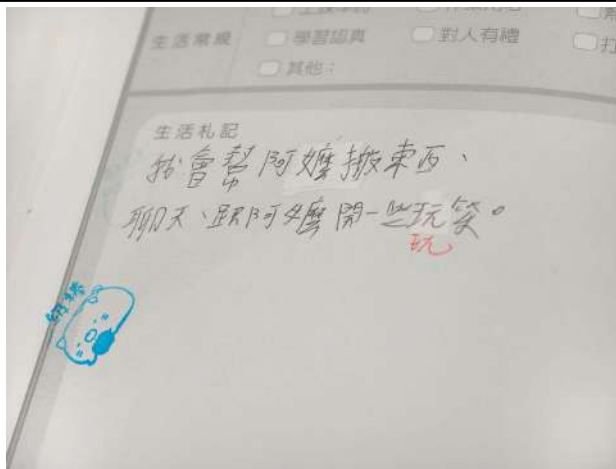 生活常規
學習認真
對人有禮
其他：
生活札記
我會幫阿嬤搬東西、
聊天、跟阿嬤開一些玩笑。
玩